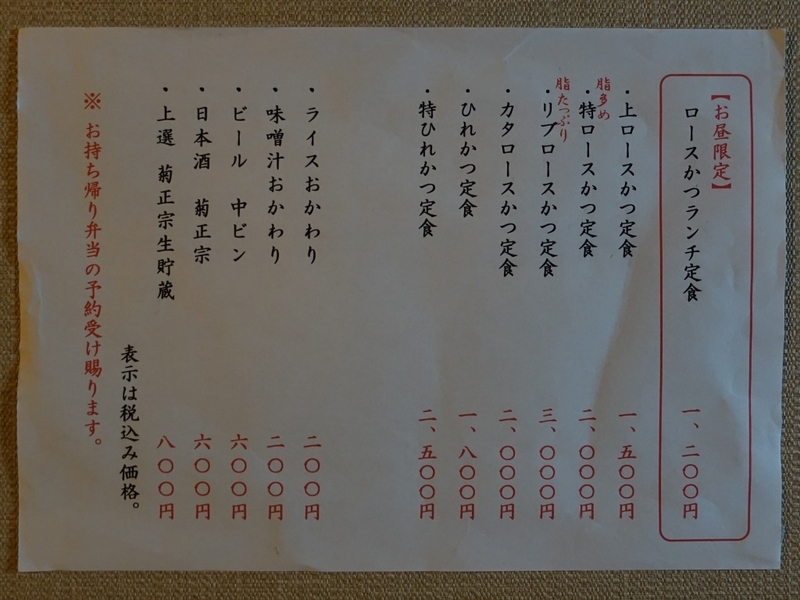 【お昼限定】
ロースかつランチ定食 一、二〇〇円
・上ロースかつ定食 一、五〇〇円
脂多め
・特ロースかつ定食 二、〇〇〇円
脂たっぷり
・リブロースかつ定食 三、〇〇〇円
・カタロースかつ定食 二、〇〇〇円
・ひれかつ定食 一、八〇〇円
・特ひれかつ定食 二、五〇〇円
・ライスおかわり 二〇〇円
・味噌汁おかわり 二〇〇円
・ビール 中ビン 六〇〇円
・日本酒 菊正宗 六〇〇円
・上選 菊正宗生貯蔵 八〇〇円
表示は税込み価格。
※ お持ち帰り弁当の予約受け賜ります。